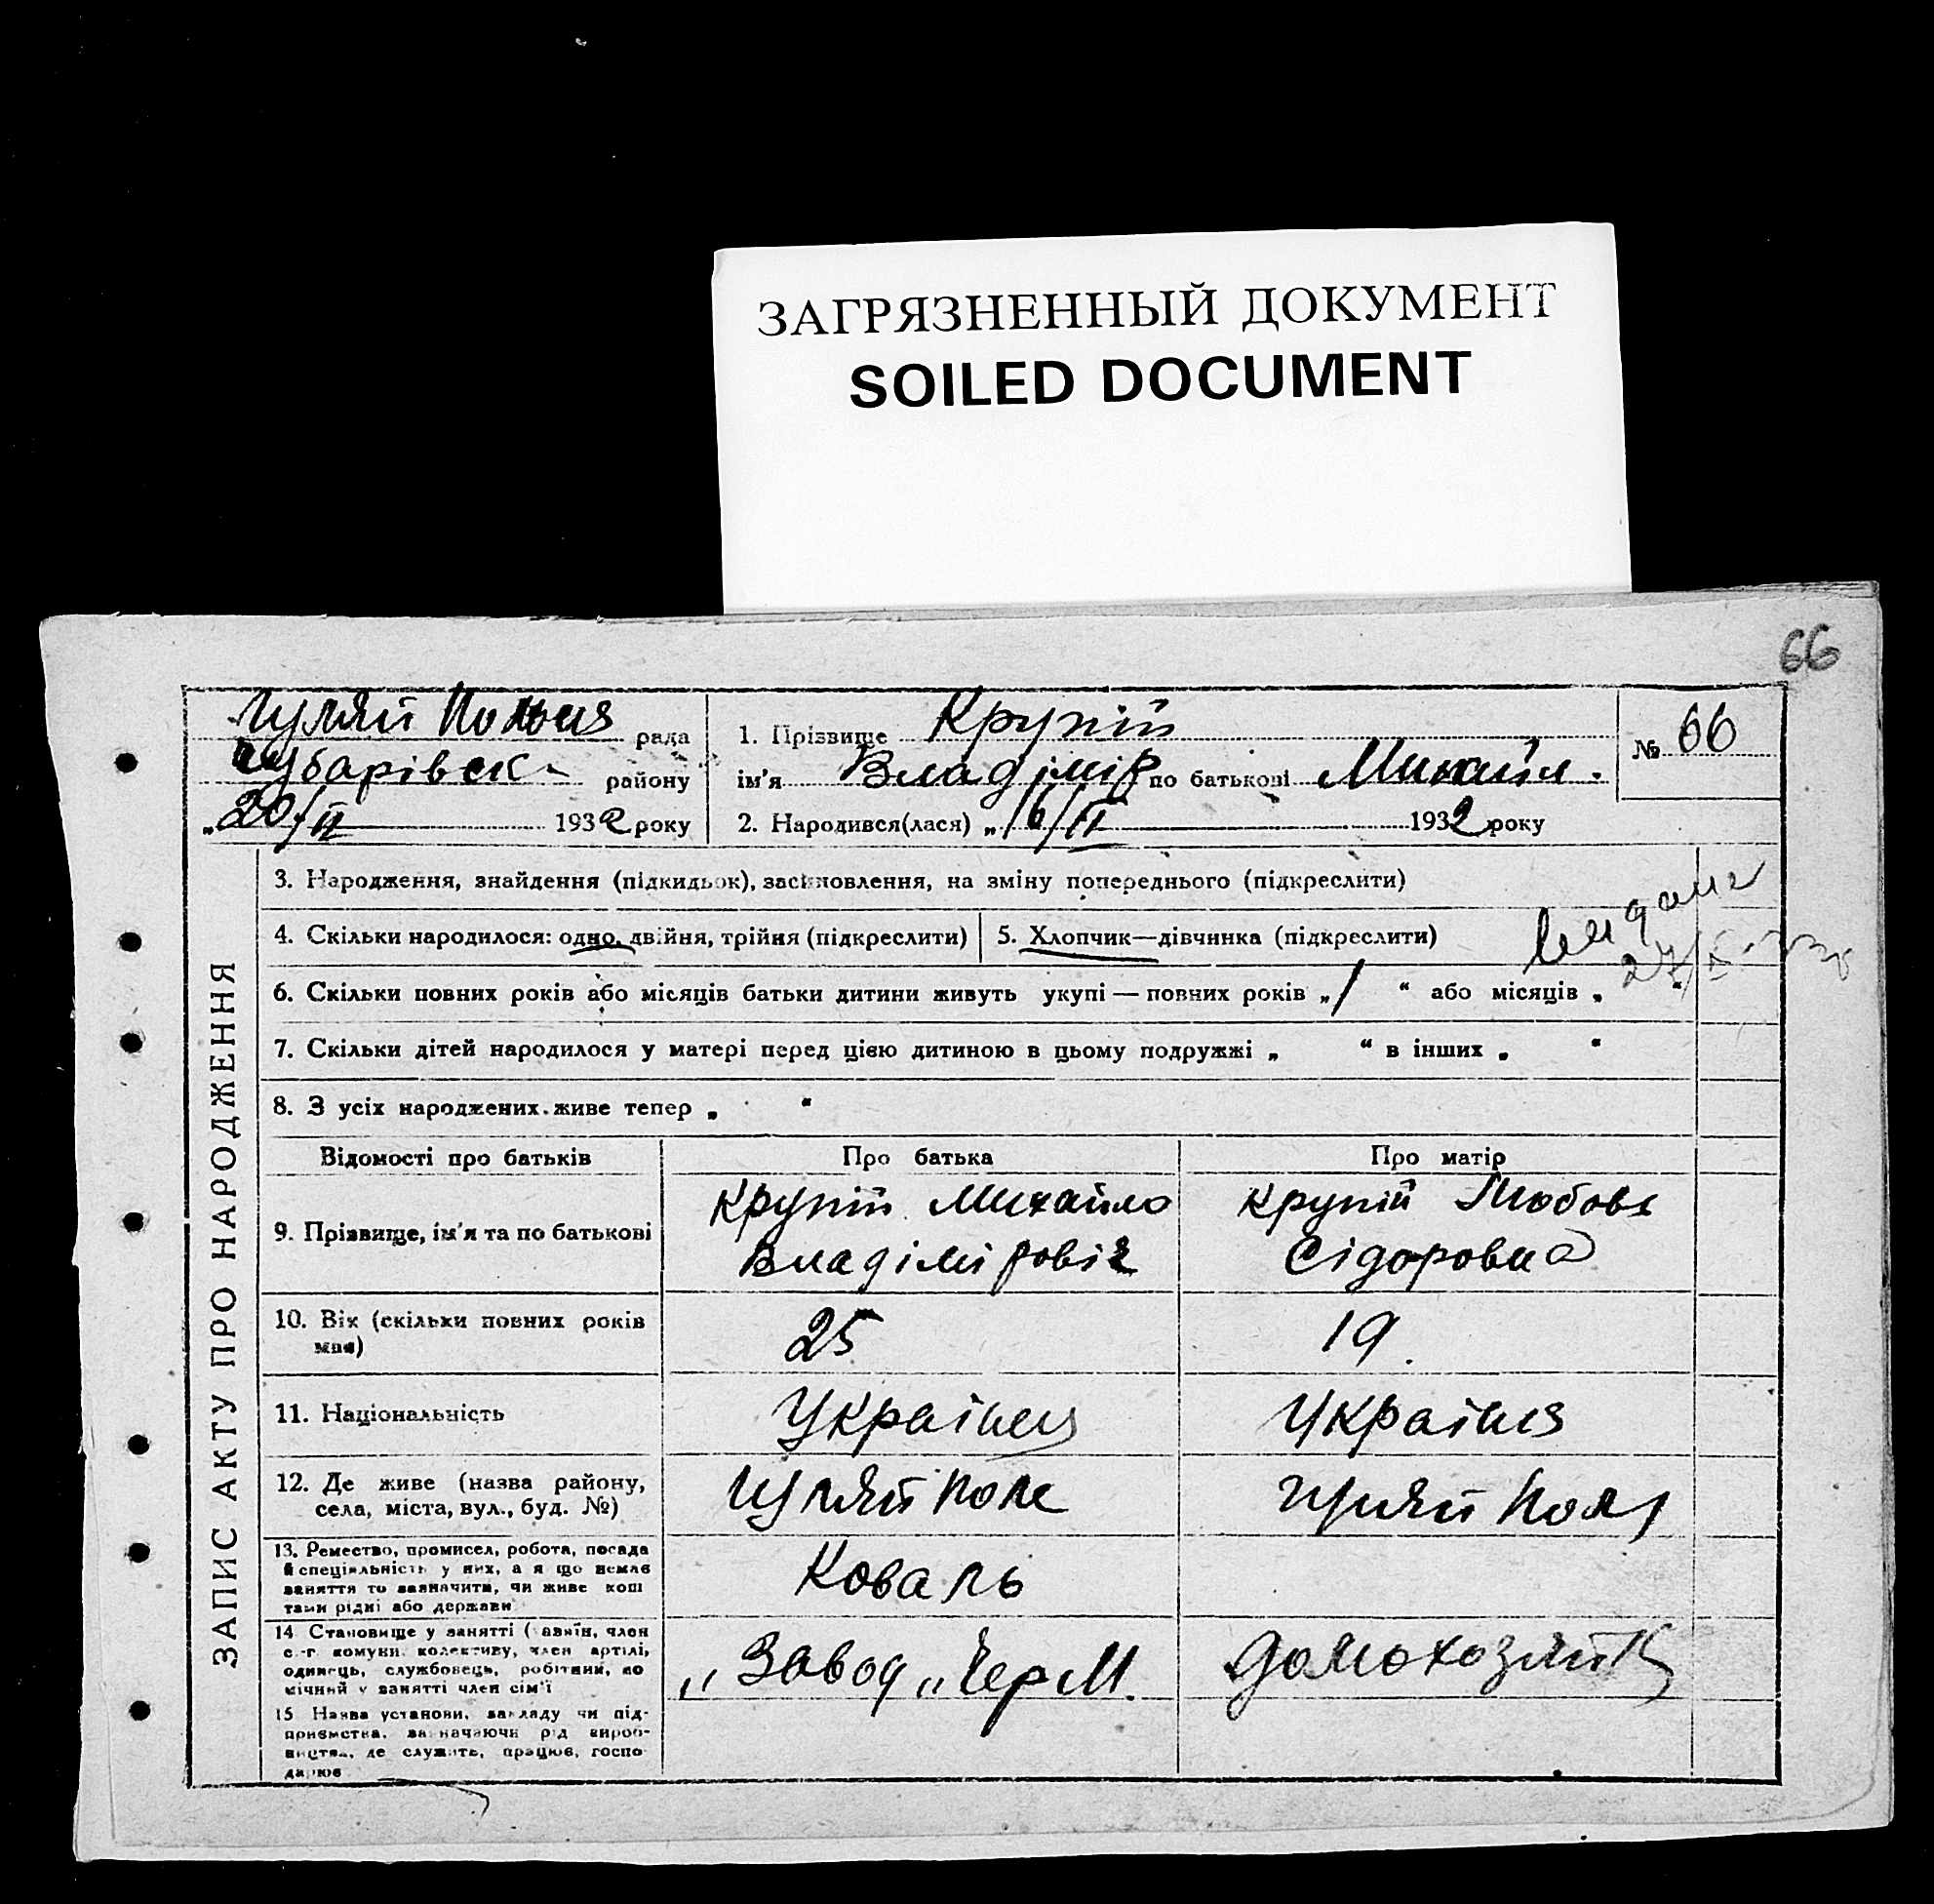 ЗАГРЯЗНЕННЫЙ ДОКУМЕНТ
SOILED DOCUMENT
66
Гуляй Польск рада
Чубарівск. району
„20/II 1932 року
1. Прізвище Крупій
ім'я Владімір по батькові Михайл.
№ 66
2. Народився(лася) „16/II 1932 року
ЗАПИС АКТУ ПРО НАРОДЖЕННЯ
3. Народження, знайдення (підкидьок), засиновлення, на зміну попереднього (підкреслити)
4. Скільки народилося: одно, двійня, трійня (підкреслити)
5. Хлопчик—дівчинка (підкреслити)
6. Скільки повних років або місяців батьки дитини живуть укупі — повних років „1 “ або місяців „ “
7. Скільки дітей народилося у матері перед цією дитиною в цьому подружжі „ “ в інших „ “
8. З усіх народжених живе тепер „ “
Відомості про батьків Про батька Про матір
9. Прізвище, ім'я та по батькові
Крупій Михайло
Владіміровіч
Крупій Любовь
Сідоровна
10. Вік (скільки повних років
має)
25
19.
11. Національність
Українец
Україн
12. Де живе (назва району,
села, міста, вул., буд. №)
Гуляй Поле
Гуляй Поле
13. Ремество, промисел, робота, посада
й спеціяльність у них, а я що немає
заняття то зазначити, чи живе кош
тами рідні або держави
Коваль
14. Становище у занятті (хазяїн, член
с.-г. комуни, колективу, член артілі,
одинець, службовець, робітник, по
мічний у занятті член сім'ї
„Завод „Чер М.
Домохозяйк
15 Назва установи, закладу чи під-
приємства, зазначаючи рід вироб-
ництва, де служить, працює, госпо
дарює